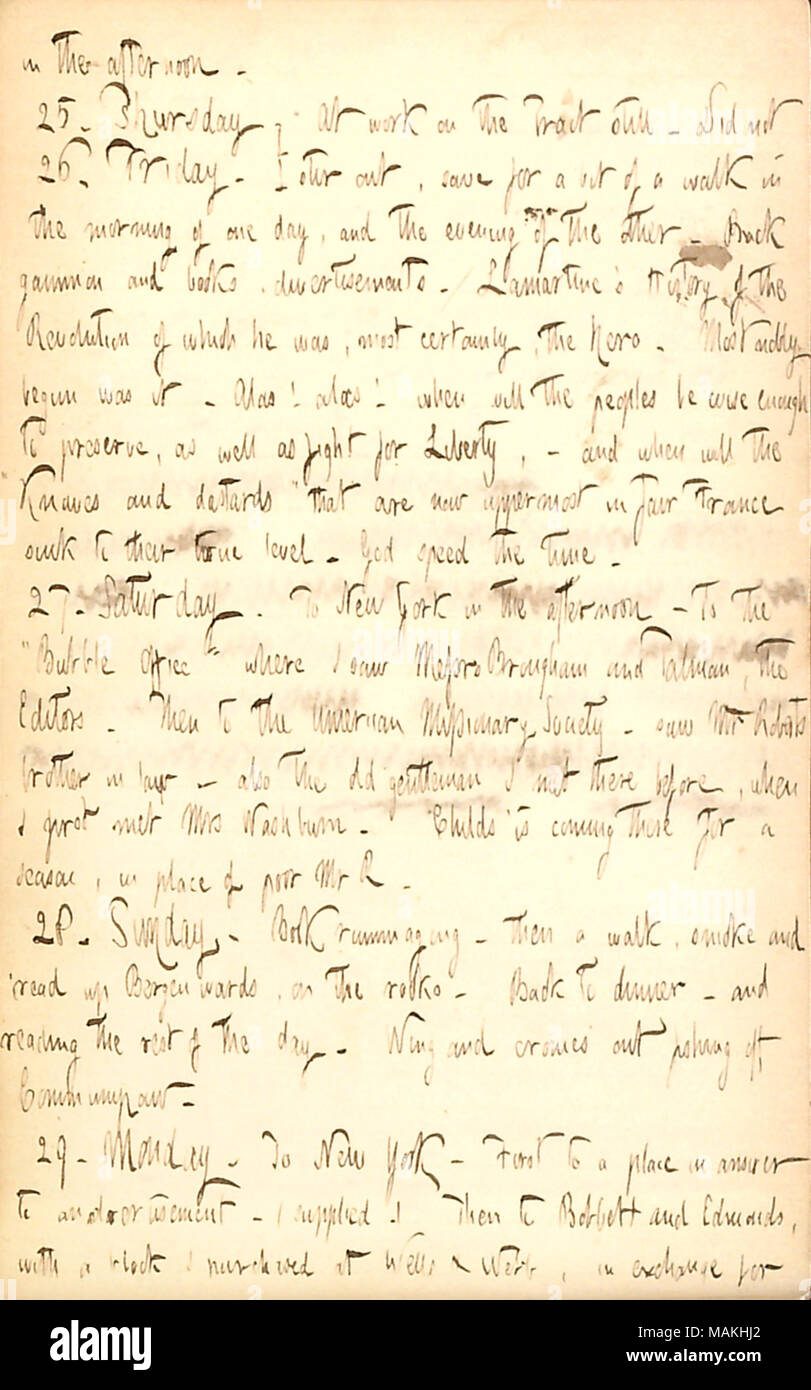 in the afternoon -
25. Thursday, At work on the Tract still - Did not
26. Friday. I stir out, save for a bit of a walk in
the morning of one day, and the evening of the other - Back
gammon and books, divertisements. Lamartine's History of the
Revolution of which he was, most certainly, the Hero. Most nobly
begun was it - Alas! alas! when will the peoples be wise enough
to preserve, as well as fight for Liberty, - and when will the
Knaves and dastards that are now uppermost in fair France
sink to their true level - God speed the time -
27. Saturday. To New York in the afternoon - To the
"Bubble Office" where I saw Messrs Brougham and Talman, the
Editors - Then to the American Missionary Society - saw Mr Roberts
brother in law - also the old gentleman I met there before, when
I first met Mrs Washburn - Childs is coming there for a
season, in place of poor Mr R.
28. Sunday, - Book rummaging - then a walk, smoke and
read up Bergen wards, on the rocks - Back to dinner - and
reading the rest of the day - Ning and cronies out fishing off
Communipaw -
29. Monday. To New York - First to a place in answer
to an advertisement - (supplied.) Then to Bobbett and Edmonds,
with a block I purchased at Wells & Webb, in exchange for
alamy
Image ID: MAKHJ2
www.alamy.com